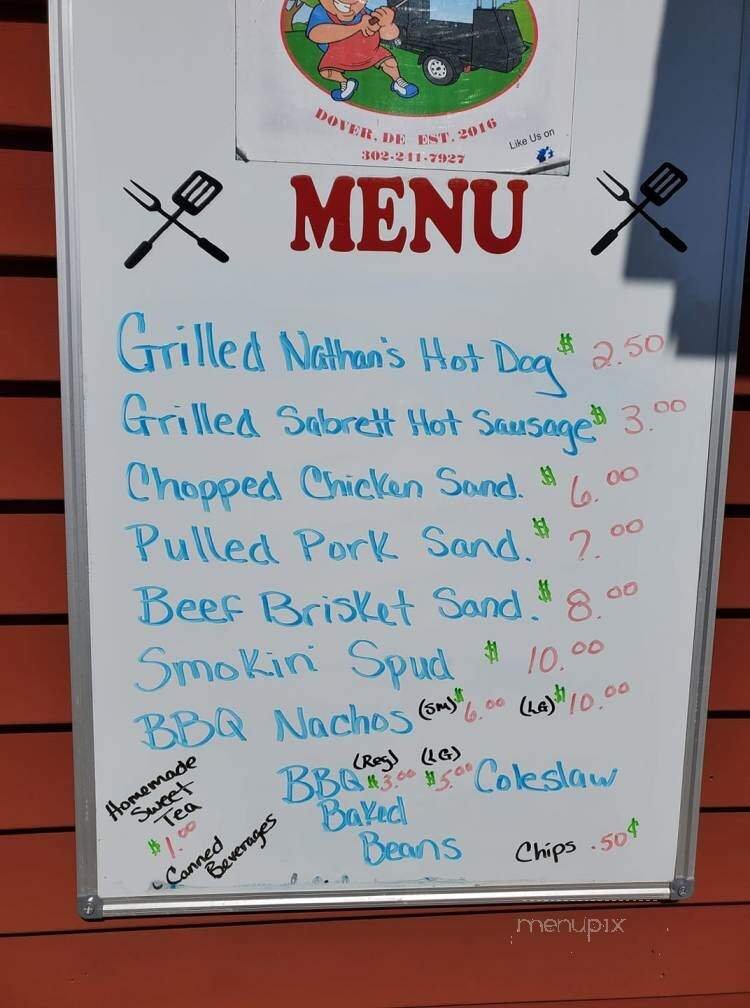 DOVER, DE EST. 2016
302-241-7927
Like Us on
MENU
Grilled Nathan's Hot Dog $ 2.50
Grilled Sabrett Hot Sausage $ 3.00
Chopped Chicken Sand. $ 6.00
Pulled Pork Sand. $ 7.00
Beef Brisket Sand. $ 8.00
Smokin' Spud $ 10.00
BBQ Nachos (SM) $ 6.00 (LG) $ 10.00
(Reg) (LG)
BBQ $3.00 $5.00 Coleslaw
Baked
Beans
Homemade
Sweet
Tea
$1.00
Canned
Beverages
Chips .50¢
menupix